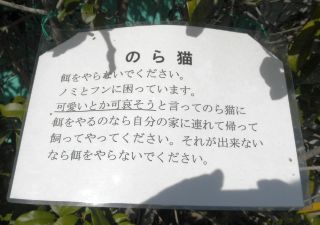 のら猫
餌をやらないでください。
ノミとフンに困っています。
可愛いとか可哀そうと言ってのら猫に
餌をやるのなら自分の家に連れて帰って
飼ってやってください。それが出来ない
なら餌をやらないでください。